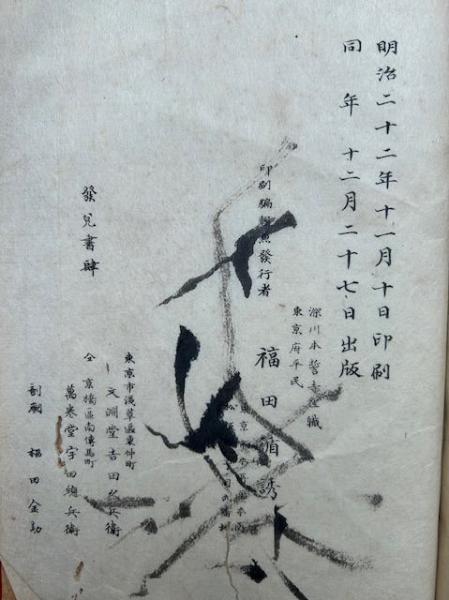 明治二十二年十一月十日印刷
同年十二月二十七日出版
深川本誓寺住職
東京府平民
印刷編輯兼發行者
福田循誘
發兌書肆
東京市淺草區東仲町
文淵堂吉田久兵衛
仝京橋區南傳馬町
萬巻堂宇田總兵衛
福田金